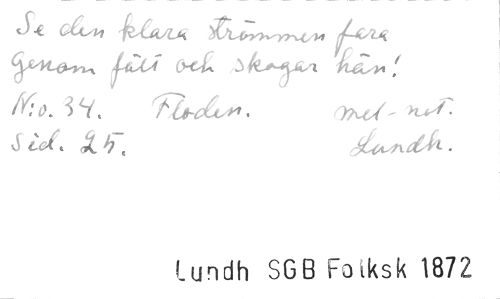 Se den klara strömmen fara
Genom fält och skogar hän!
N:o. 34. Floden. mel-not.
Sid. 25. Lundh.
Lundh SGB Folksk 1872